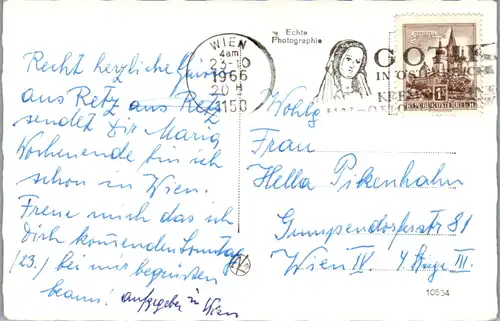 Echte
Photographie
WIEN
4am
1966
20H
1150
GOTIK
IN ÖSTERREICH
REPUBLIK ÖSTERREICH
Recht herzliche Grüsse
aus Retz aus Retz
sendet Dir Maria
Wochenende bin ich
schon in Wien.
Freue mich das ich
Dich kommenden Sonntag
/23./ bei mir begrüssen
kann! aufgegeben in Wien
Wohlg
Frau
Hella Pikenhahn
Gumpendorferstr 81
Wien IV. 4 Stiege III.
10534